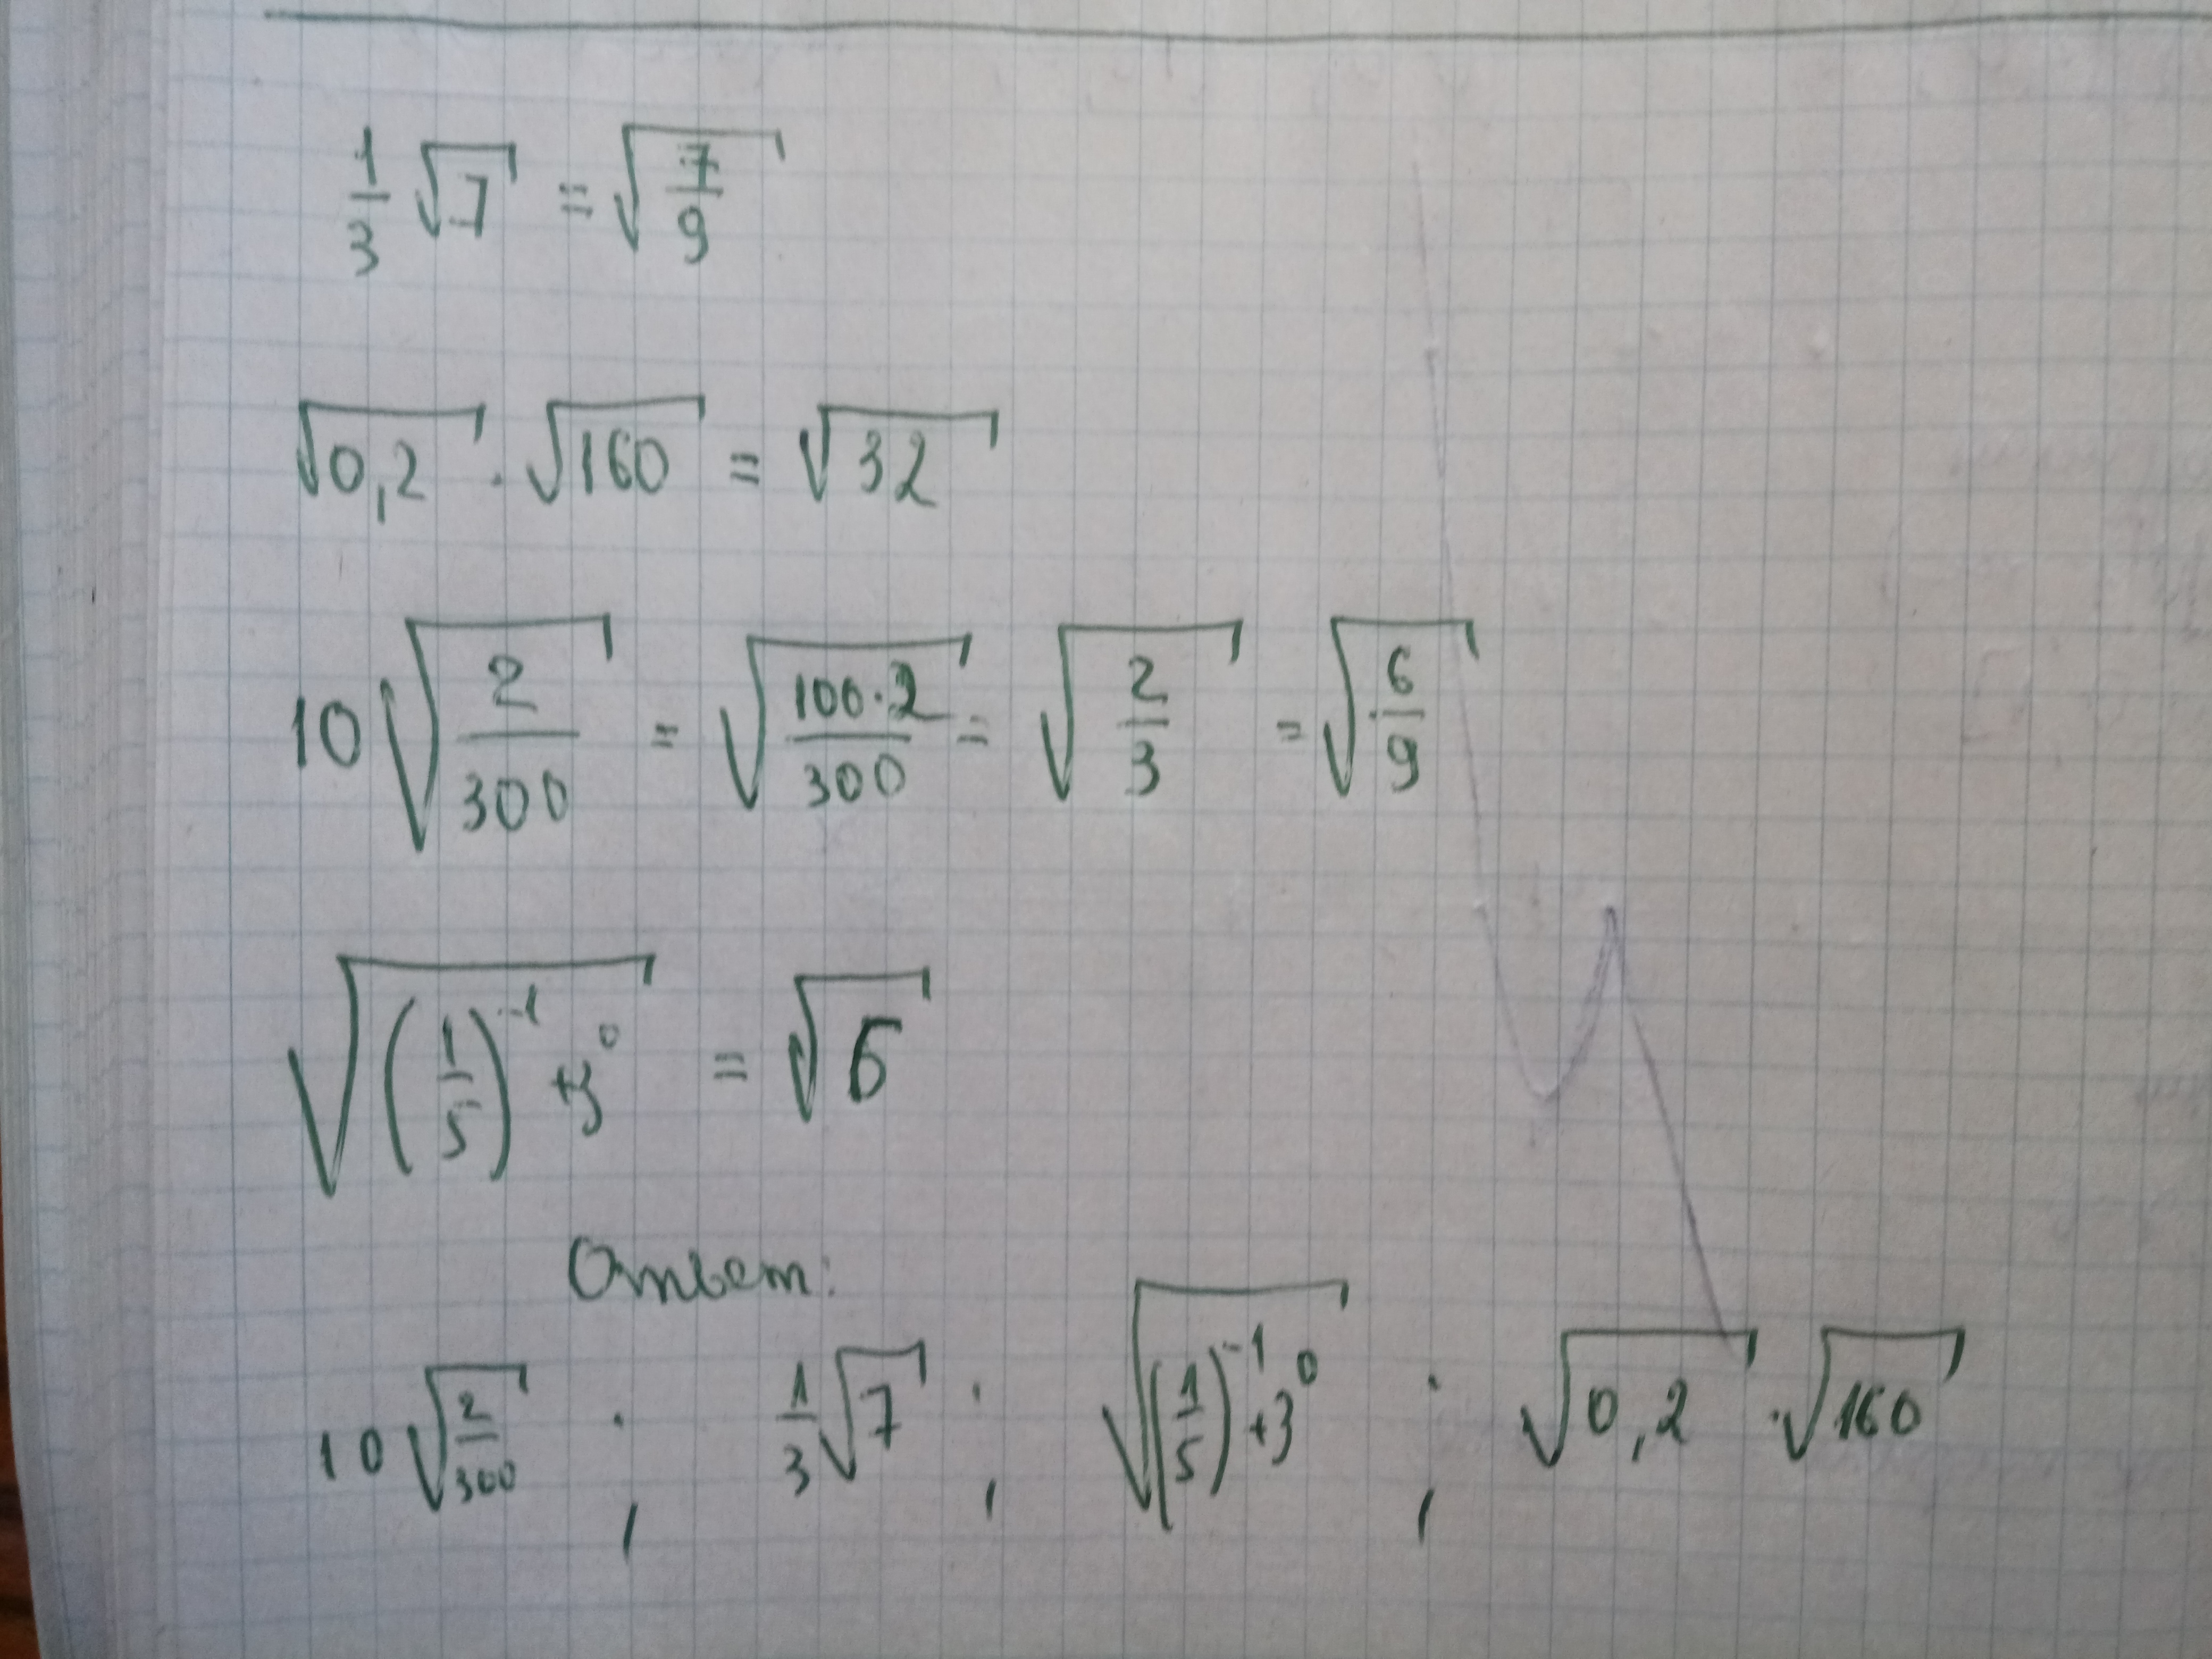 1/3 √7 = √(7/9)
√0,2 · √160 = √32
10 √(2/300) = √(100·2/300) = √(2/3) = √(6/9)
√((1/5)⁻¹ + 3⁰) = √6
Ответ:
10 √(2/300) ; 1/3 √7 ; √((1/5)⁻¹ + 3⁰) ; √0,2 · √160